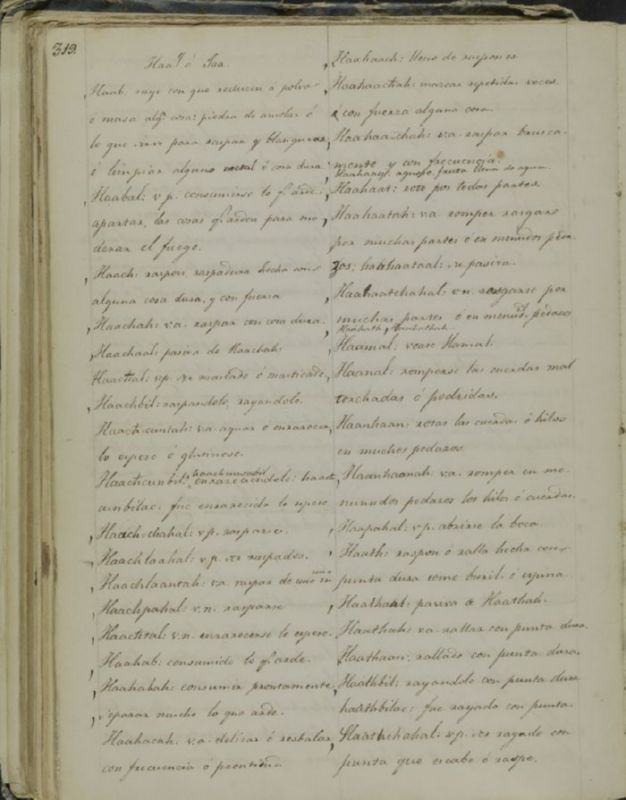 319.
Haa
Haab. raye con que reducen á polvo
ó masa alg. cosa: piedra de amolar ó
lo que sirve para raspar y blanquear
ó limpiar alguna ó cosa dura.
Haabal: v.p. consumirse lo q. arde:
apartar, las cosas q. arden para mo
derar el fuego.
Haach: raspon, raspadura hecha con
alguna cosa dura, y con fuerza
Haachah: v.a. raspar con cosa dura.
Haachaal: pasiva de Haachah
Haachal: v.p. ser mascado ó masticado,
Haachbil: raspandolo, rayandolo.
Haacti cuntah: v.a. aguar ó enrarecer
lo espeso ó glutinoso.
Haacticunbil: enrareciendolo: haact
cunbilac: fue enrarecido lo espeso
Haach-chahal: v.p. rasparse.
Haachlaahal: v.p. ser raspados.
Haachlaantah: v.a. raspar de uno en
uno
Haachpahal: v.n. rasparse
Haactital: v.n. enrarecerse lo espeso.
Haahab: consumido lo q. arde.
Haahabah: consumir prontamente,
separar mucho lo que arde.
Haahacah: v.a. deslizar ó resbalar,
con frecuencia ó prontitud
Haahaach: lleno de raspones
Haahaachah: marcar repetidas veces
ó con fuerza alguna cosa.
Haahaachah: v.a. raspar brusca-
mente y con frecuencia.
fruta llena de agua.
Haahaat: roto por todas partes.
Haahaatah: v.a. romper rasgar
por muchas partes ó en menudos peda
zos; hahhaataal: su pasiva.
Haahaatchahal: v.n. rasgarse por
muchas partes ó en menud.s pedazos
Haamal: vease Hamal.
Haanal: romperse las cuerdas mal
torchadas ó podridas.
Haanhaan: rotas las cuerdas ó hilos
en muchos pedazos.
Haanhaanah: v.a. romper en me
nudos pedazos los hilos ó cuerdas.
Haapahal: v.p. abrirse la boca
Haath: raspon ó ralla hecha con
punta dura como buril, ó espina
Haathaal: pasiva de Haathah.
Haathah: v.a. rallar con punta dura.
Haathaan: rallado con punta dura.
Haathbil: rayandolo con punta dura
haathbilac: fue rayado con punta.
Haathchahal: v.p. ser rayado con
punta que escabe ó raspe.